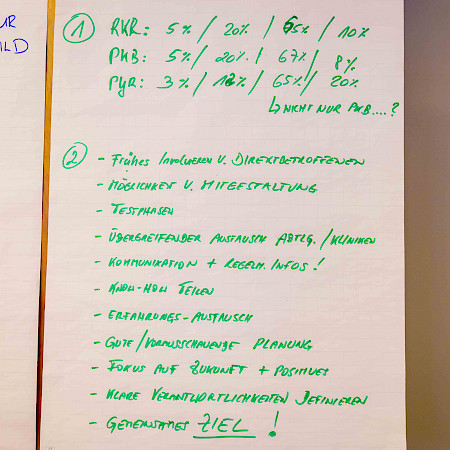 UR
ILD
① RKR: 5% / 20% / 65% / 10%
PKB: 5% / 20% / 67% / 8%
PYR: 3% / 12% / 65% / 20%
↳ NICHT NUR PKB....?
② - Frühes Involvieren v. Direktbetroffenen
- Möglichkeit v. Mitgestaltung
- Testphasen
- Übergreifender Austausch Abtlg. / Kliniken
- Kommunikation + regelm. Infos!
- Know-How Teilen
- Erfahrungs-Austausch
- Gute / Vorausschauende Planung
- Fokus auf Zukunft + Positives
- Klare Verantwortlichkeiten Definieren
- Gemeinsames ZIEL!